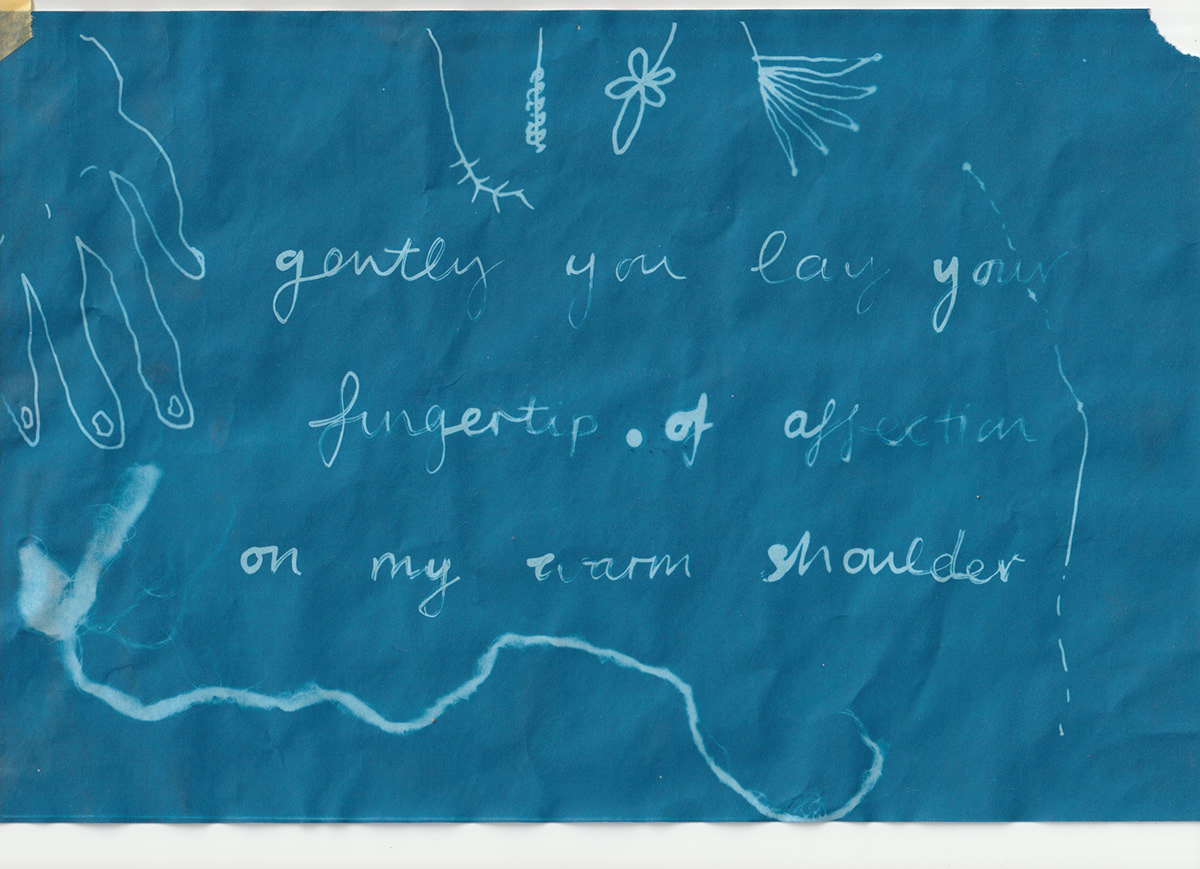 gently you lay your
fingertip. of affection
on my warm shoulder